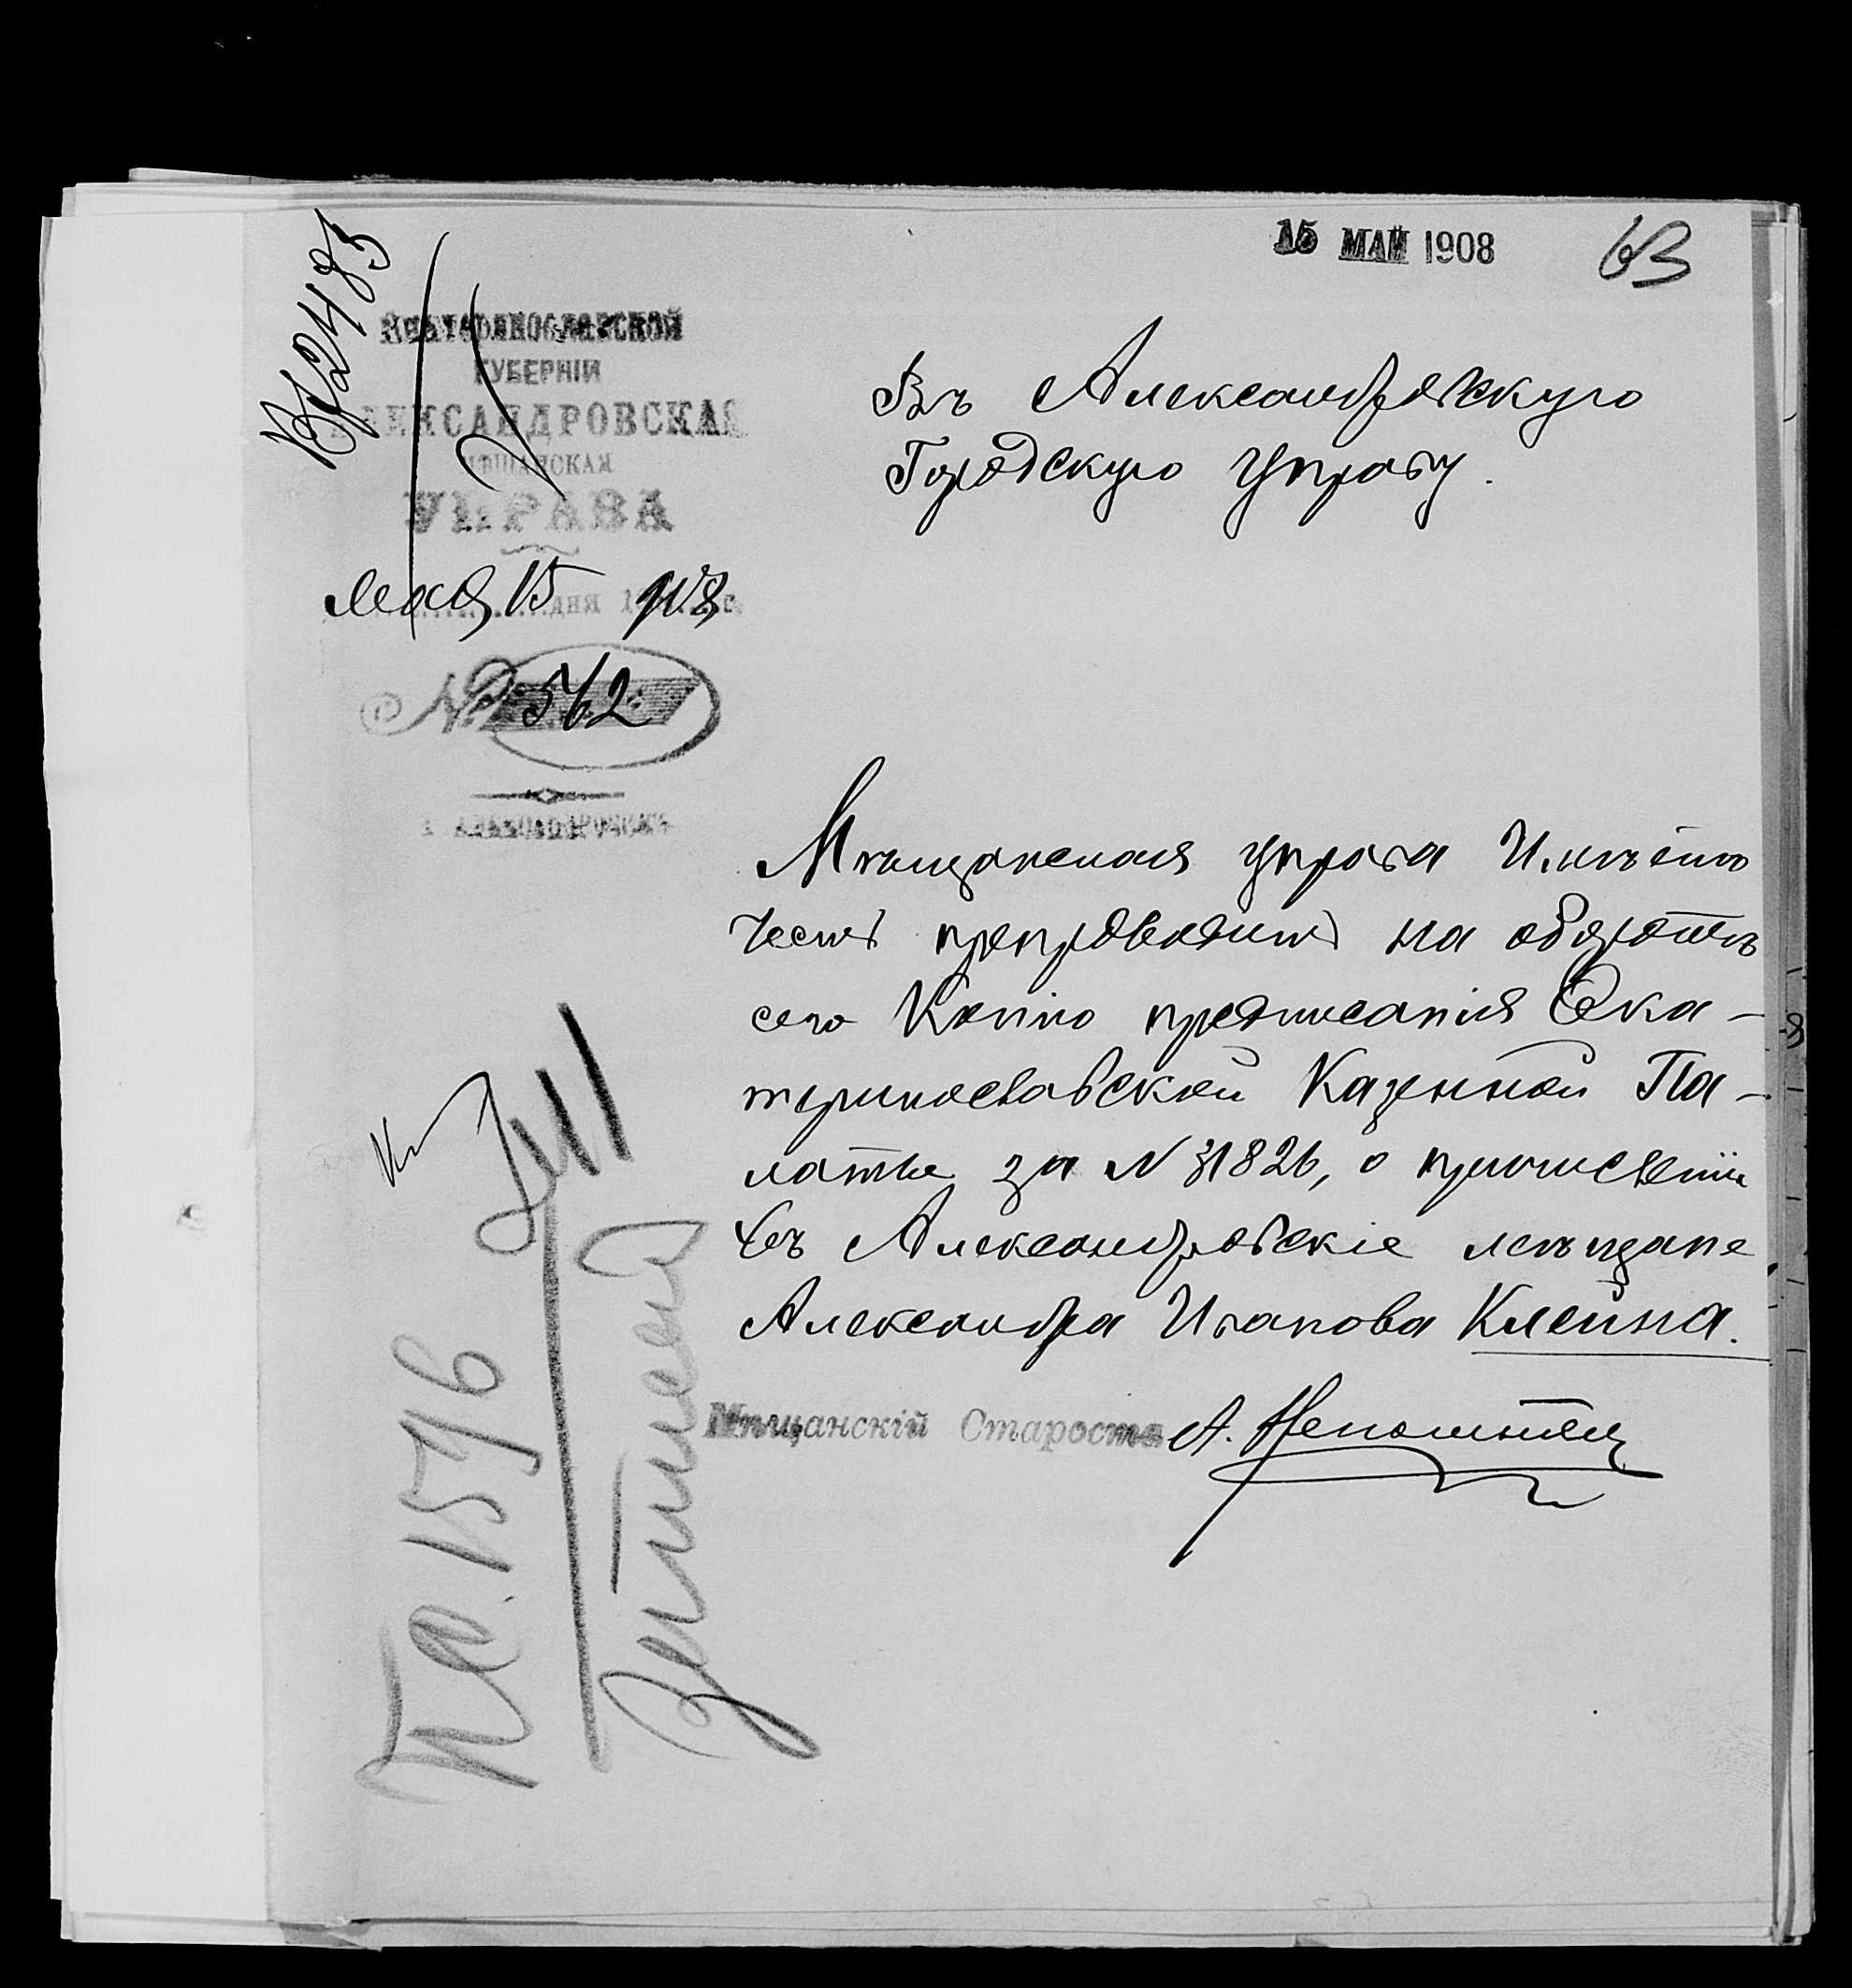 15 МАЙ 1908
63
Вх 2483
Екатеринославской
ГУБЕРНІИ
АЛЕКСАНДРОВСКАЯ
МѢЩАНСКАЯ
УПРАВА
Мая 15 дня 1908 г.
№ 562
г. Александровскъ
Въ Александровскую
Городскую Управу.
Мѣщанская управа Имѣетъ
честь препроводить на оборотѣ
сего Копію предписанія Ека-
теринославской Казенной Па-
латы за N 31826, о причисленіи
въ Александровскіе мѣщане
Александра Иванова Клейна.
Мѣщанскій Староста А.
1576